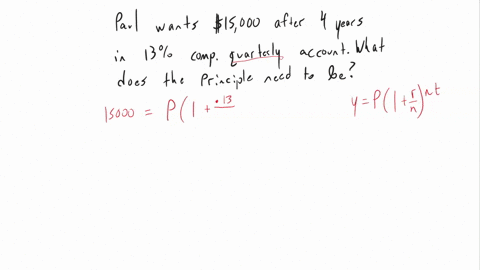 Paul wants $15,000 after 4 years
in 13% comp. quarterly account. What
does the Principle need to be?
15000 = P(1 + .13/
y = P(1 + r/n)^nt